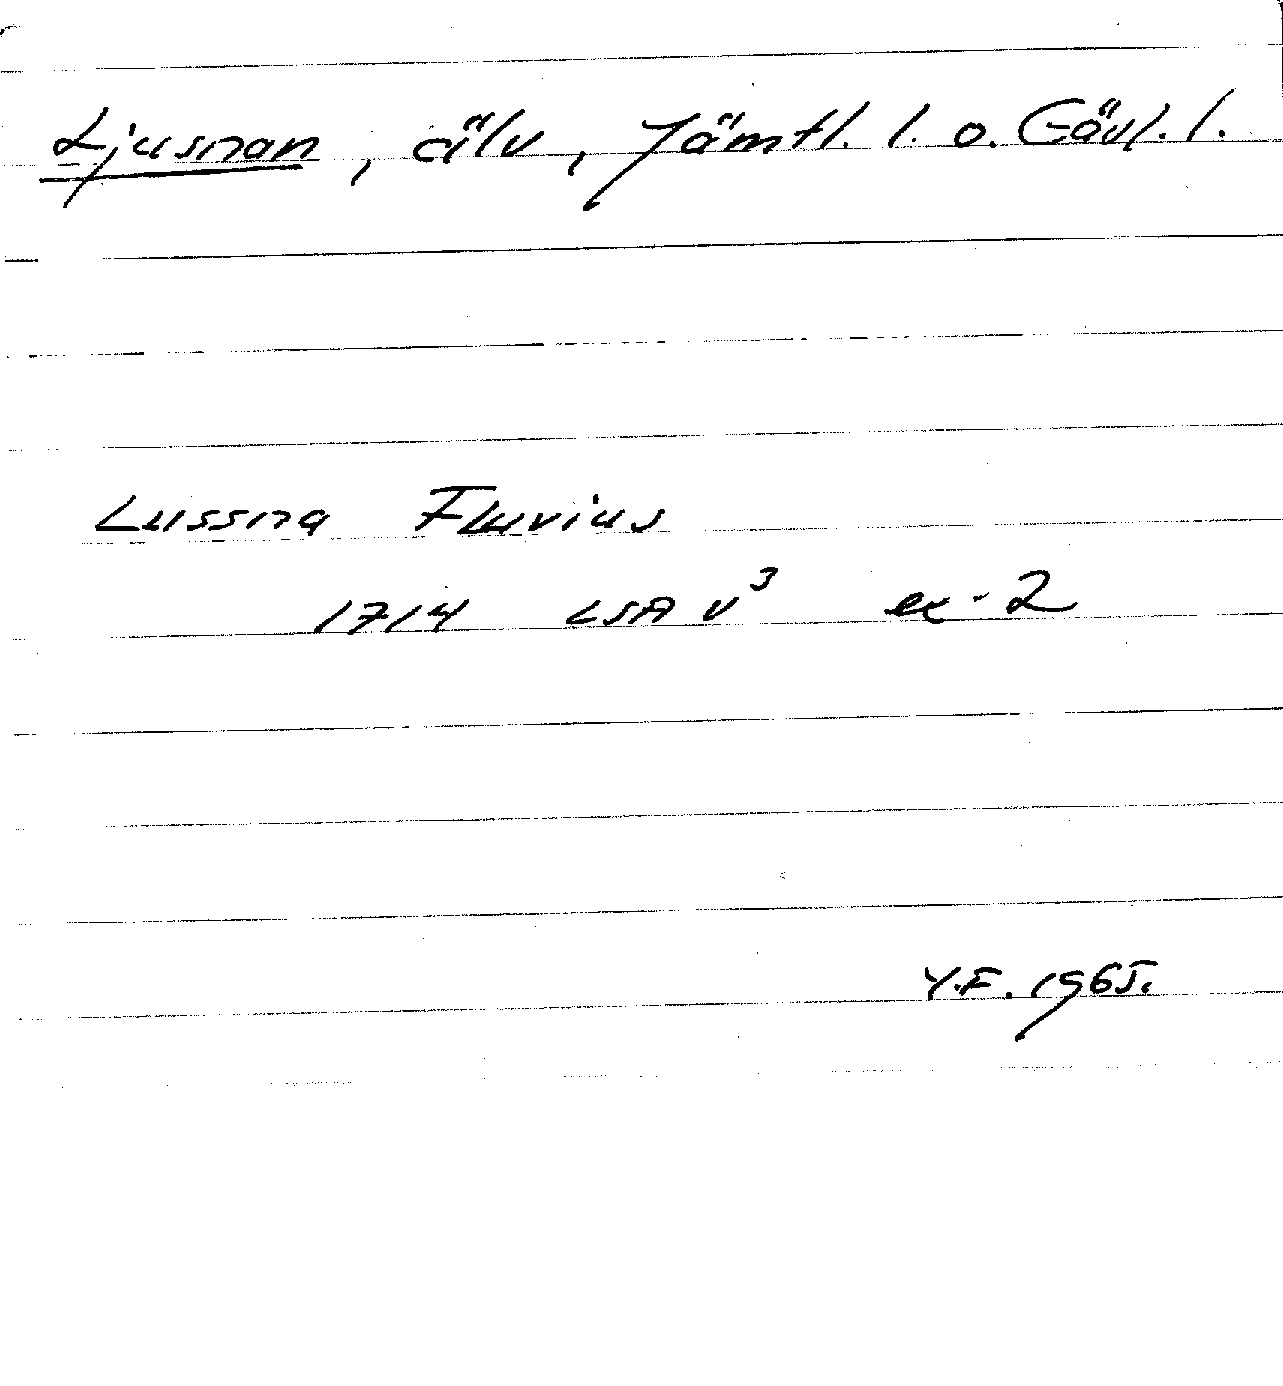 Ljusnan, älv, Jämtl. l. o. Gävl. l.
Lussna Fluvius
1714 LSA V³ ex. 2
Y.F. 1965.